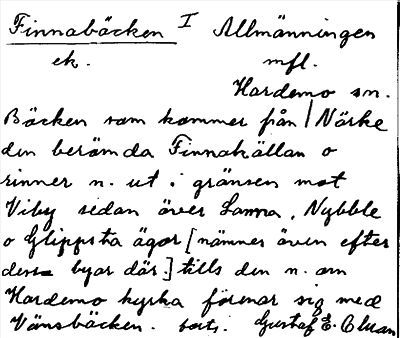 Finnabäcken I Allmänningen
ek. mfl.
Hardemo sn.
Bäcken som kommer från / Närke
den berömda Finnakällan o
rinner n. ut i gränsen mot
Viby sedan över Sanna, Nybble
o Glippsta ägor [nämner även efter
dessa byar där.] tills den n. om
Hardemo kyrka förenar sig med
Vänsbäcken. forts. Gustaf E.